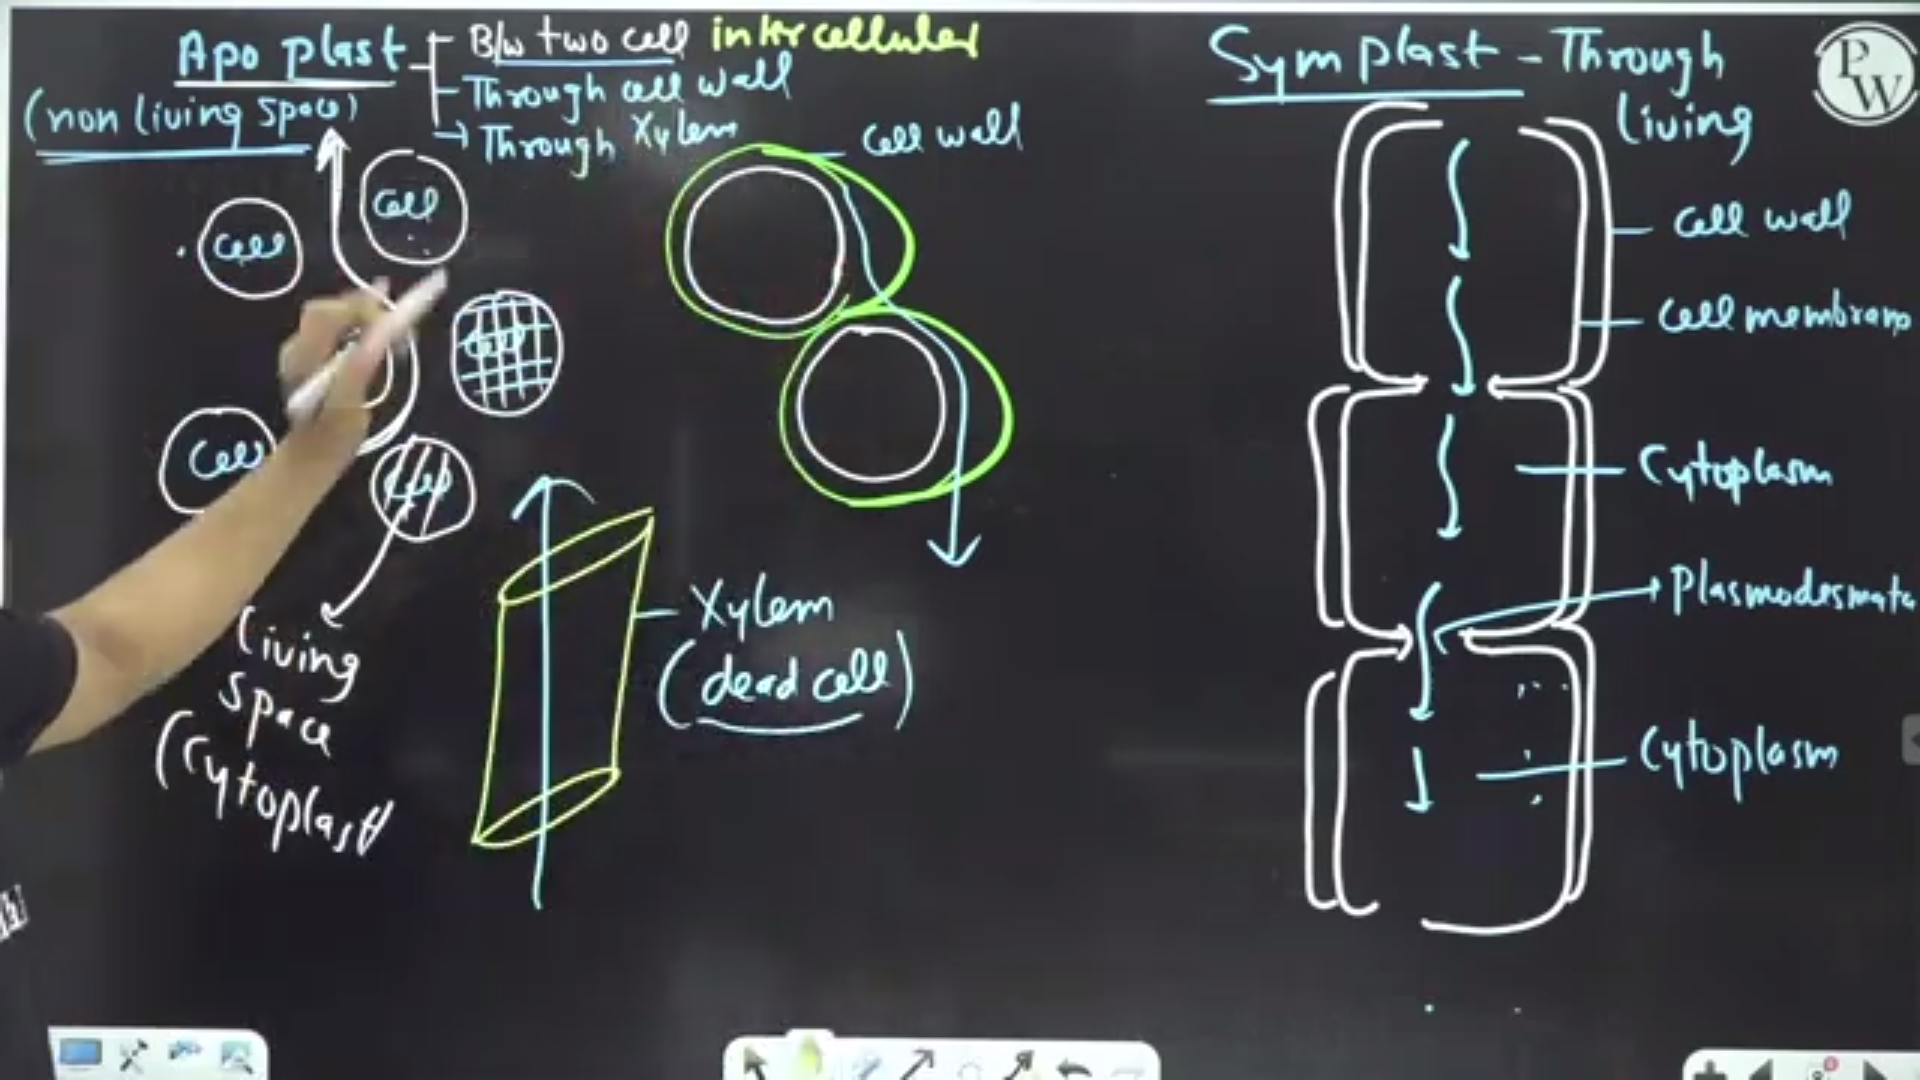 Apoplast
B/w two cell intercellular
Through cell wall
(non living space)
Through Xylem
cell wall
cell
cell
cell
cell
cell
Living
space
(Cytoplast)
Xylem
(dead cell)
Symplast - Through
Living
cell wall
cell membrane
Cytoplasm
Plasmodesmata
Cytoplasm
PW